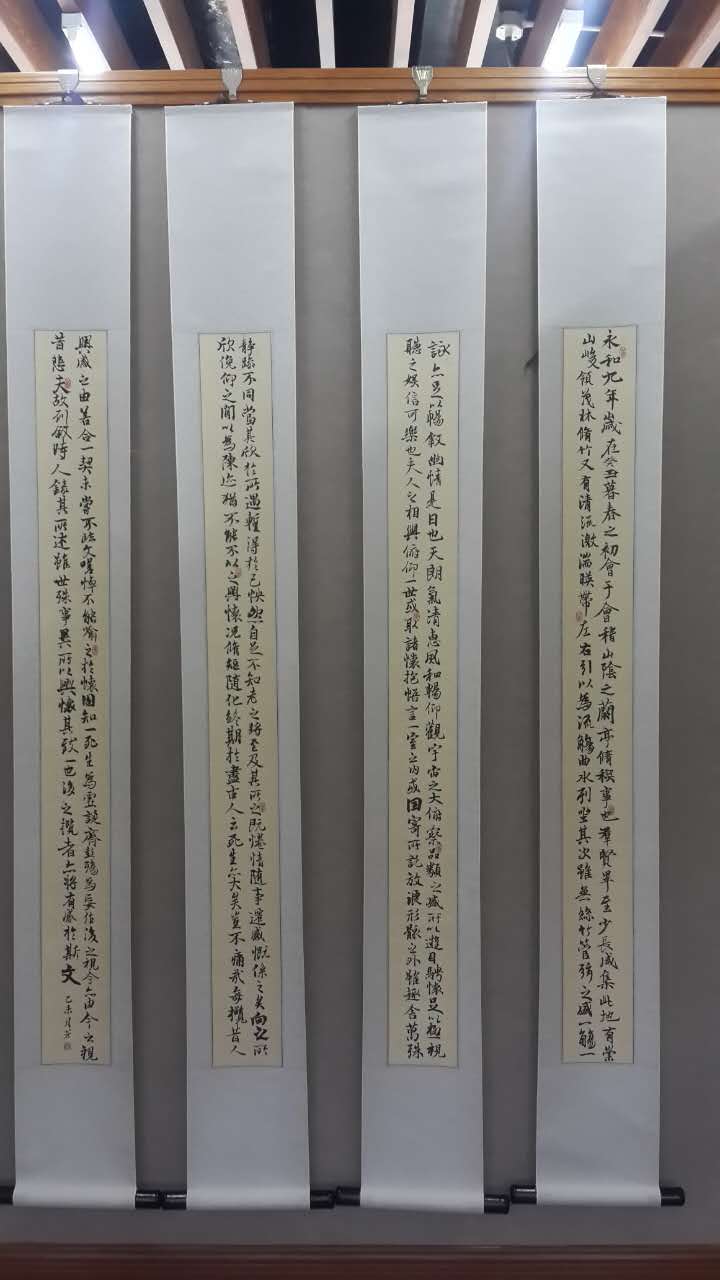 永和九年歲在癸丑暮春之初會于會稽山陰之蘭亭脩稧事也羣賢畢至少長咸集此地有崇
山峻領茂林脩竹又有清流激湍暎帶左右引以為流觴曲水列坐其次雖無絲竹管弦之盛一觴一
詠亦足以暢敘幽情是日也天朗氣清惠風和暢仰觀宇宙之大俯察品類之盛所以遊目騁懷足以極視
聽之娛信可樂也夫人之相與俯仰一世或取諸懷抱悟言一室之內或因寄所託放浪形骸之外雖趣舍萬殊
靜躁不同當其欣於所遇暫得於己怏然自足不知老之將至及其所之既惓情隨事遷感慨係之矣向之所
欣俛仰之閒以為陳迹猶不能不以之興懷況脩短隨化終期於盡古人云死生亦大矣豈不痛哉每攬昔人
興感之由若合一契未嘗不臨文嗟悼不能喻之於懷固知一死生為虛誕齊彭殤為妄作後之視今亦由今之視
昔悲夫故列敘時人錄其所述雖世殊事異所以興懷其致一也後之攬者亦將有感於斯文